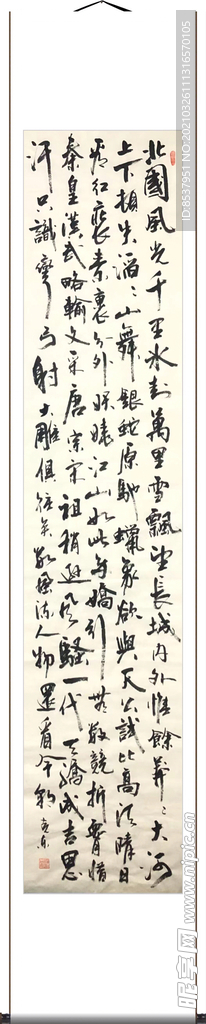 北國風光千里冰封萬里雪飄望長城内外惟餘莽々大河
上下頓失滔々山舞銀蛇原馳蠟象欲與天公試比高須晴日
看紅裝素裹分外妖嬈江山如此多嬌引無數競折腰惜
秦皇漢武略輸文采唐宗宋祖稍遜風騷一代天驕成吉思
汗只識彎弓射大雕俱往矣數風流人物還看今朝
ID:8537951 NO:20210326111316570105
昵享网 www.nipic.cn